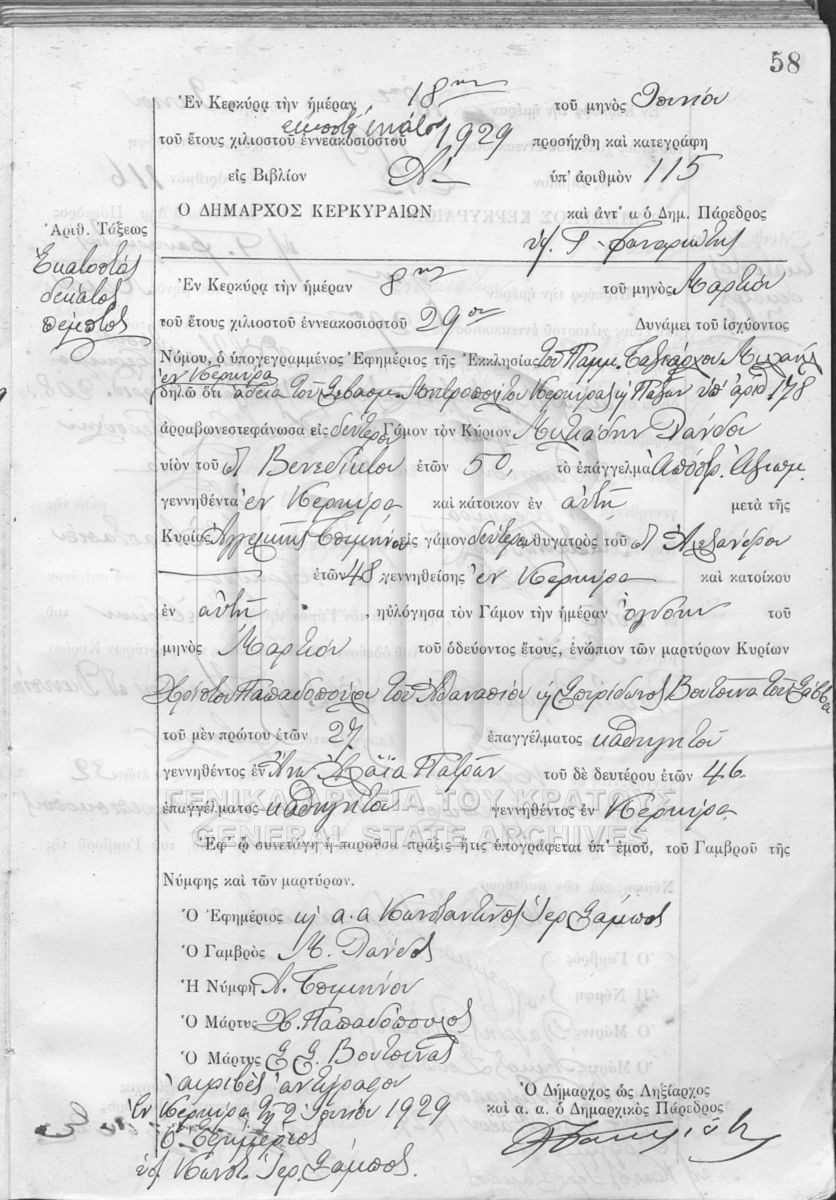 58
Ἐν Κερκύρᾳ τὴν ἡμέραν 18ην τοῦ μηνὸς Ἰουνίου
τοῦ ἔτους χιλιοστοῦ ἐννεακοσιοστοῦ εἰκοστοῦ ἐννάτου 1929 προσήχθη καὶ κατεγράφη
εἰς Βιβλίον Α΄ ὑπ' ἀριθμὸν 115
Ο ΔΗΜΑΡΧΟΣ ΚΕΡΚΥΡΑΙΩΝ καὶ ἀντ' α ὁ Δημ. Πάρεδρος
Ἀριθ. Τάξεως
Ἑκατοστὸς
δέκατος
πέμπτος
Ἐν Κερκύρᾳ τὴν ἡμέραν 8ην τοῦ μηνὸς Μαρτίου
τοῦ ἔτους χιλιοστοῦ ἐννεακοσιοστοῦ 29ου Δυνάμει τοῦ ἰσχύοντος
Νόμου, ὁ ὑπογεγραμμένος Ἐφημέριος τῆς Ἐκκλησίας τοῦ Παμμ. Ταξιάρχου Μιχαὴλ
ἐν Κερκύρᾳ
δηλῶ ὅτι ἀδείᾳ τοῦ Σεβασμ. Μητροπολίτου Κερκύρας ὑπ' ἀριθ. 178
ἀρραβωνεστεφάνωσα εἰς δεύτερον Γάμον τὸν Κύριον Μιλτιάδην Λάνδον
υἱὸν τοῦ Βενεδίκτου ἐτῶν 50, τὸ ἐπάγγελμα Ἀπόστρ. Ἀξιωμ.
γεννηθέντα ἐν Κερκύρᾳ καὶ κάτοικον ἐν αὐτῇ μετὰ τῆς
Κυρίας Ἀγγελικῆς εἰς γάμον δεύτερον θυγατρὸς τοῦ Ἀλεξάνδρου
ἐτῶν 48 γεννηθείσης ἐν Κερκύρᾳ καὶ κατοίκου
ἐν αὐτῇ , ηὐλόγησα τὸν Γάμον τὴν ἡμέραν ὀγδόην τοῦ
μηνὸς Μαρτίου τοῦ ὁδεύοντος ἔτους, ἐνώπιον τῶν μαρτύρων Κυρίων
Χρίστου Παπαδοπούλου τοῦ Ἀθανασίου Σπυρίδωνος Βουτσινᾶ τοῦ Σάββα
τοῦ μὲν πρώτου ἐτῶν 27 ἐπαγγέλματος καθηγητοῦ
γεννηθέντος ἐν Ἄνω Ἀχαΐᾳ Πατρῶν τοῦ δὲ δευτέρου ἐτῶν 46
ΓΕΝΙΚΑ ΑΡΧΕΙΑ ΤΟΥ ΚΡΑΤΟΥΣ
ἐπαγγέλματος καθηγητοῦ γεννηθέντος ἐν Κερκύρᾳ
GENERAL STATE ARCHIVES
Ἐφ' ᾧ συνετάγη ἡ παροῦσα πρᾶξις ἥτις ὑπογράφεται ὑπ' ἐμοῦ, τοῦ Γαμβροῦ τῆς
Νύμφης καὶ τῶν μαρτύρων.
Ὁ Ἐφημέριος α.α Κωνσταντῖνος Ἱερ. Σάμπος
Ὁ Γαμβρὸς Μ. Λάνδος
Ἡ Νύμφη Α.
Ὁ Μάρτυς Χ. Παπαδόπουλος
Ὁ Μάρτυς Σ. Σ. Βουτσινᾶς
Ἀκριβὲς ἀντίγραφον
Ἐν Κερκύρᾳ τῇ 2 Ἰουνίου 1929
Ὁ Ἐφημέριος
Κωνστ. Ἱερ. Σάμπος.
Ὁ Δήμαρχος ὡς Ληξίαρχος
καὶ α. α. ὁ Δημαρχικὸς Πάρεδρος